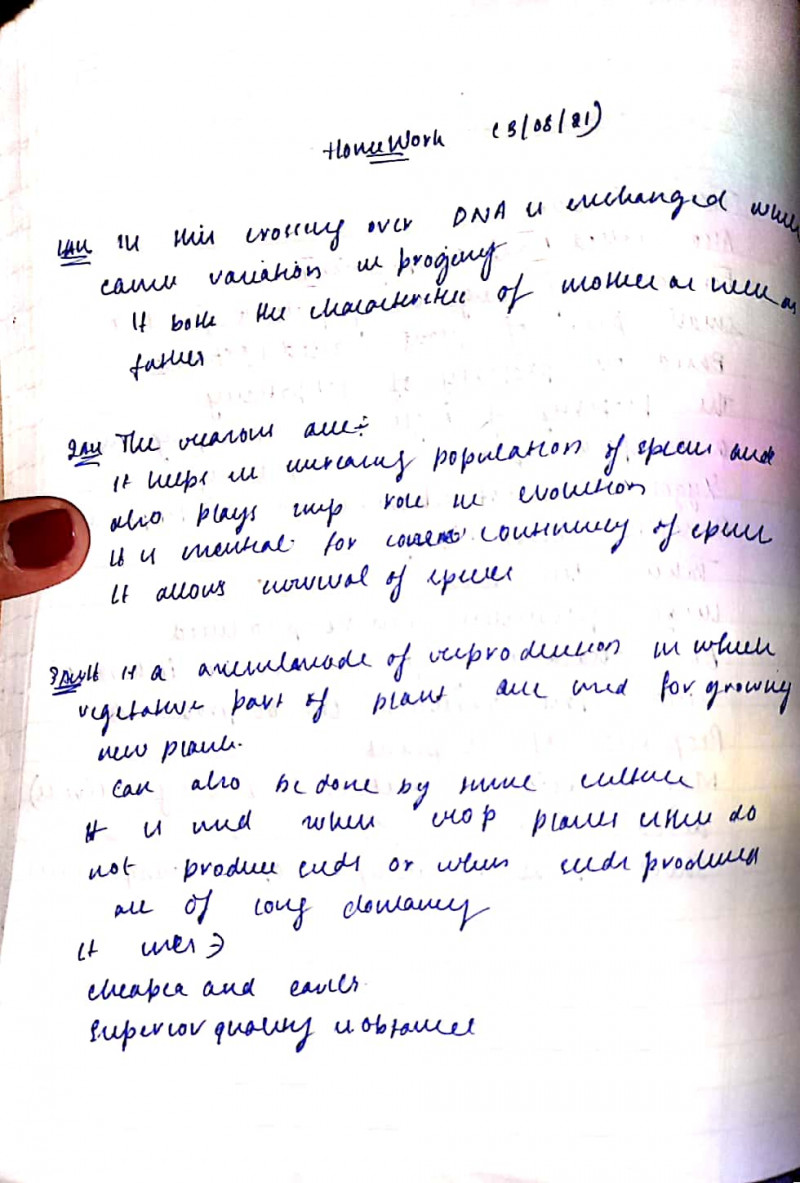 HomeWork (3/08/21)
1Ans In this crossing over DNA is exchanged which
cause variation in progeny
It both the characteristic of mother as well as
father
2Ans The reasons are:
It helps in increasing population of species and
also plays imp role in evolution
It is essential for continuity of species
It allows survival of species
3Ans It is a mode of reproduction in which
vegetative part of plant are used for growing
new plants.
Can also be done by tissue culture
It is used when crop plants either do
not produce seeds or when seeds produced
are of long dormancy
It uses →
cheaper and easier
Superior quality is obtained